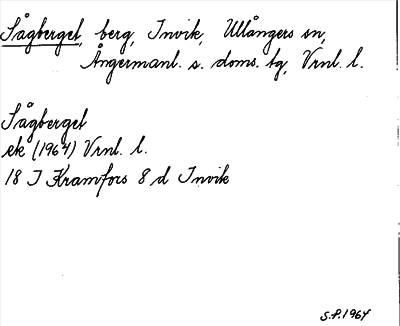 Sågberget, berg, Invik, Ullångers sn,
Ångermanl. s. doms. tg, Vrnl. l.
Sågberget
ek (1964) Vrnl. l.
18 I Kramfors 8 d Invik
S.P. 1964